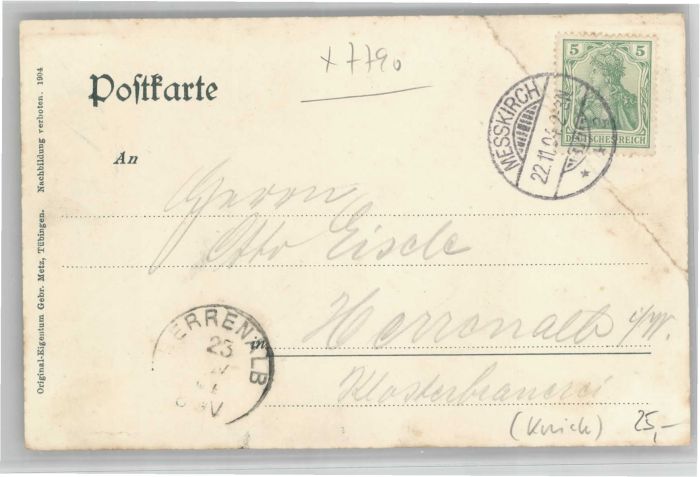 Original-Eigentum Gebr. Metz, Tübingen. Nachbildung verboten. 1904
x 7790
Postkarte
5 5
DEUTSCHES REICH
MESSKIRCH
22.11.04
An
Herrn
Otto Eisele
HERRENALB
23
in Herrenalb i/W.
Klosterbrauerei
25,-